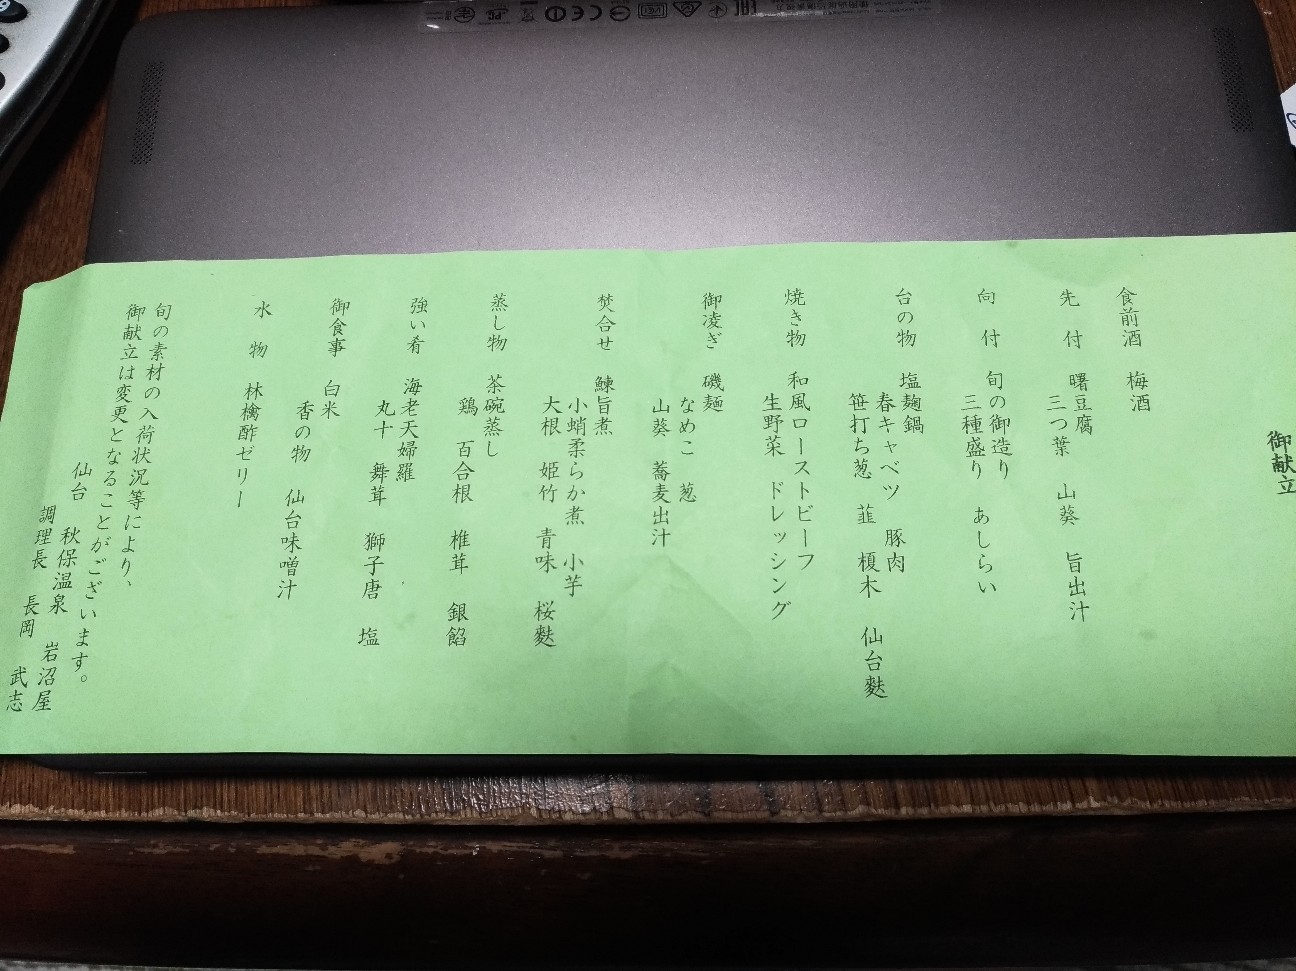 御献立
食前酒　梅酒
先　付　曙豆腐
三つ葉　山葵　旨出汁
向　付　旬の御造り
三種盛り　あしらい
台の物　塩麹鍋
春キャベツ　豚肉
笹打ち葱　韮　榎木　仙台麩
焼き物　和風ローストビーフ
生野菜　ドレッシング
御凌ぎ　磯麺
なめこ　葱
山葵　蕎麦出汁
焚合せ　鰊旨煮
小蛸柔らか煮　小芋
大根　姫竹　青味　桜麩
蒸し物　茶碗蒸し
鶏　百合根　椎茸　銀餡
強い肴　海老天婦羅
丸十　舞茸　獅子唐　塩
御食事　白米
香の物　仙台味噌汁
水　物　林檎酢ゼリー
旬の素材の入荷状況等により、
御献立は変更となることがございます。
仙台　秋保温泉　岩沼屋
調理長　長岡　武志